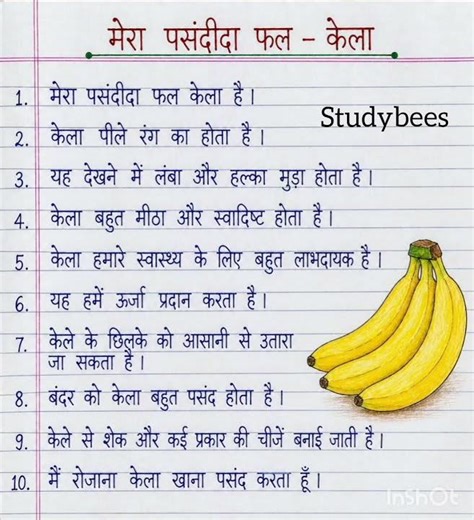 मेरा पसंदीदा फल – केला
1. मेरा पसंदीदा फल केला है।
Studybees
2. केला पीले रंग का होता है।
3. यह देखने में लंबा और हल्का मुड़ा होता है।
4. केला बहुत मीठा और स्वादिष्ट होता है।
5. केला हमारे स्वास्थ्य के लिए बहुत लाभदायक है।
6. यह हमें ऊर्जा प्रदान करता है।
7. केले के छिलके को आसानी से उतारा
जा सकता है।
8. बंदर को केला बहुत पसंद होता है।
9. केले से शेक और कई प्रकार की चीजें बनाई जाती है।
10. मैं रोजाना केला खाना पसंद करता हूँ।
InShOt